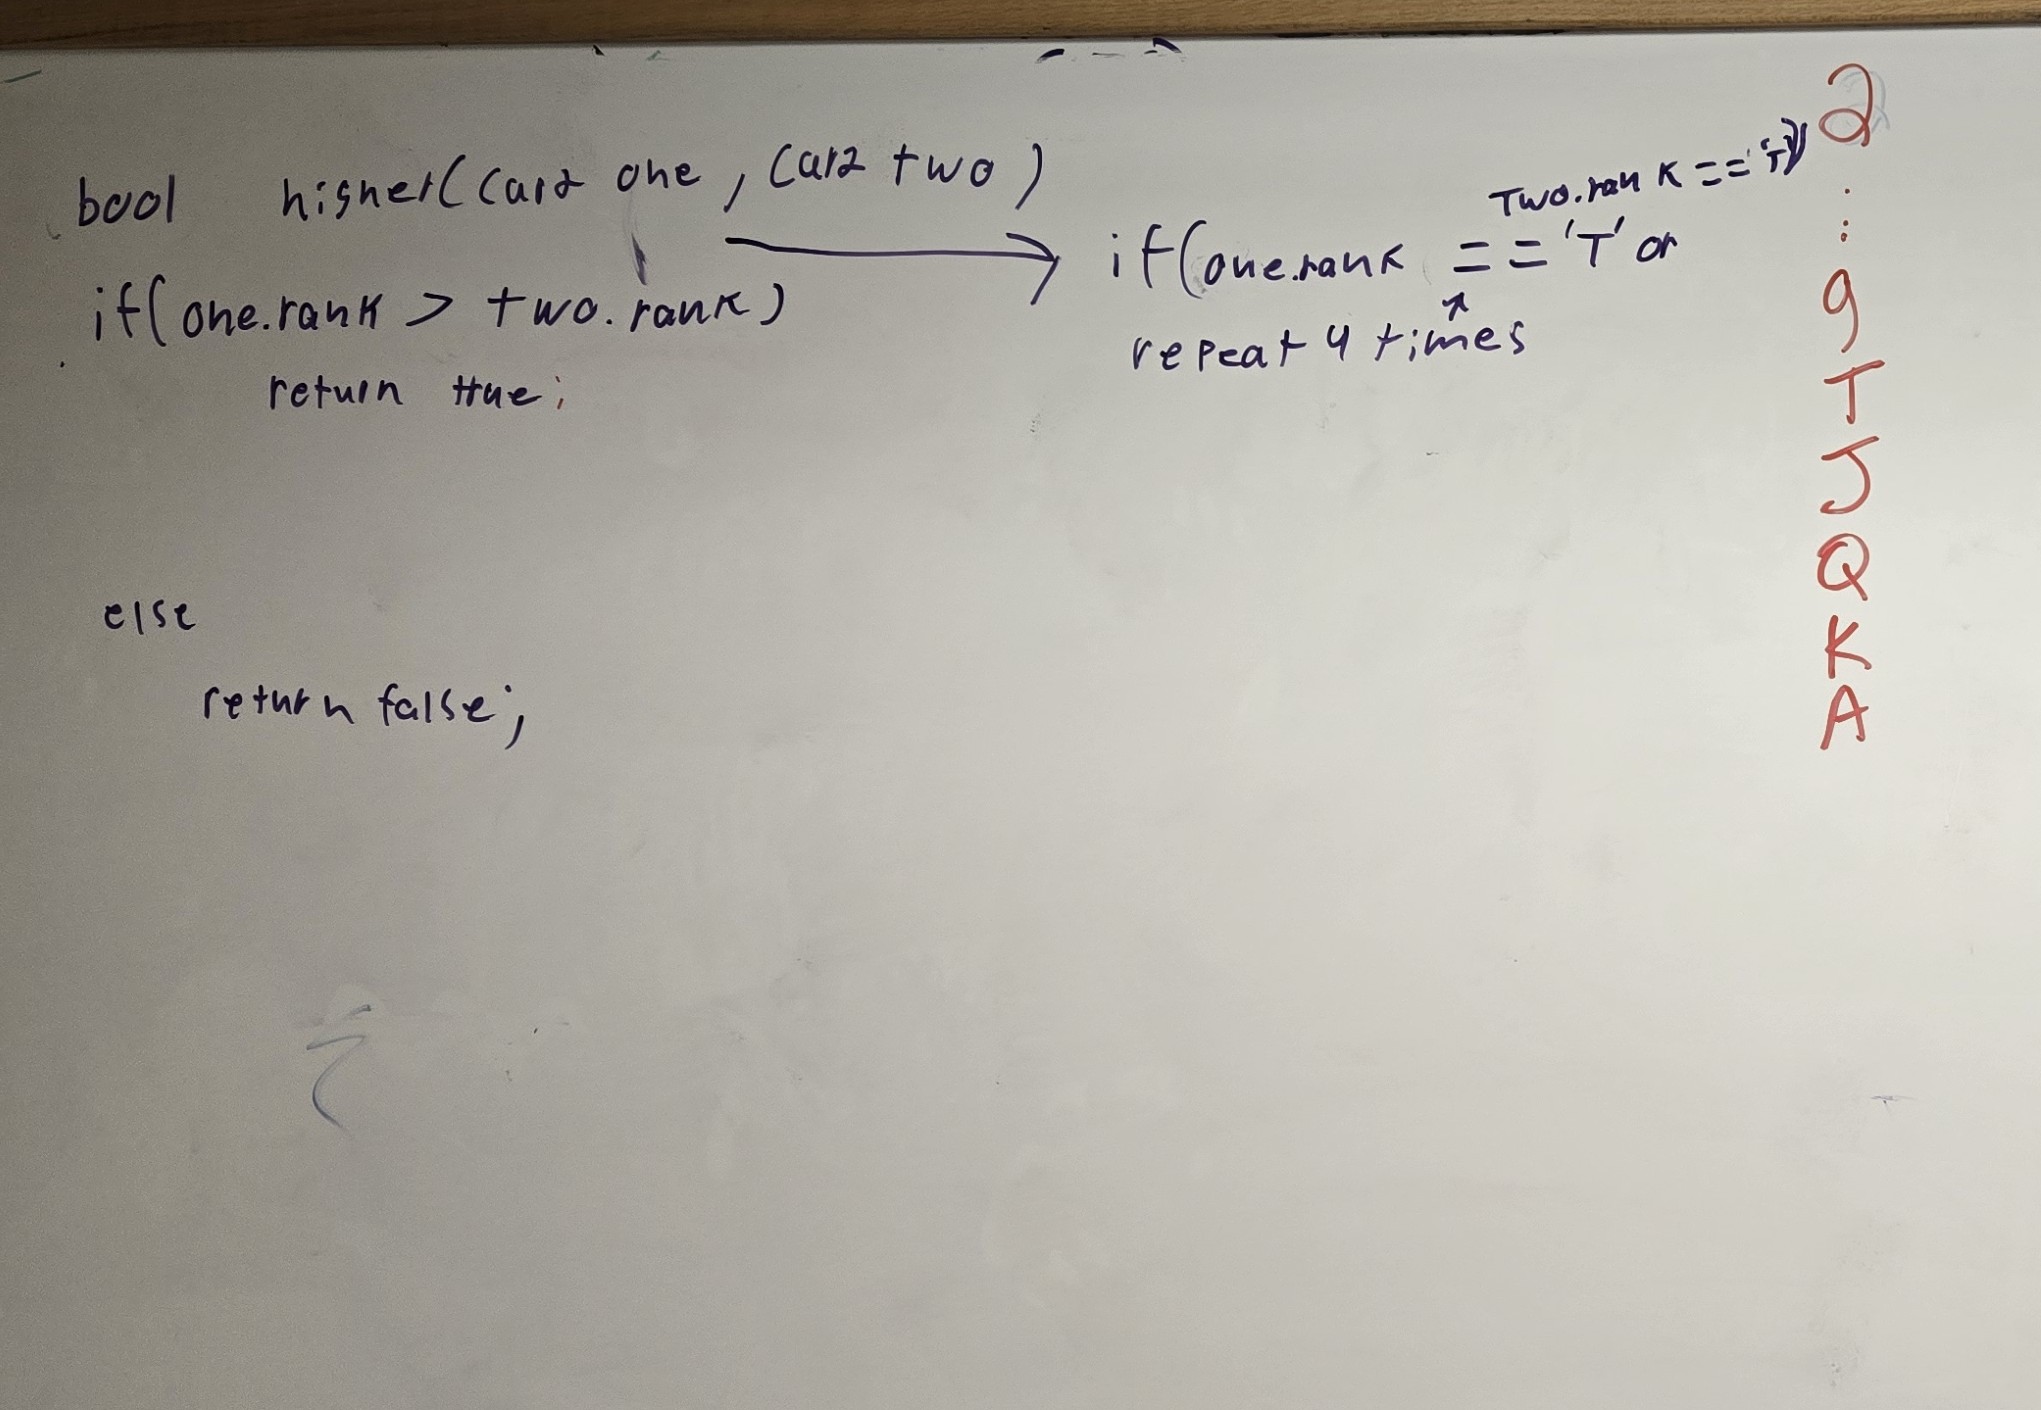 bool higher(Card one, Card two)
if(one.rank > two.rank)
return true;
else
return false;
Two.rank == 'T')
if(one.rank == 'T' or
repeat 4 times
2
:
9
T
J
Q
K
A